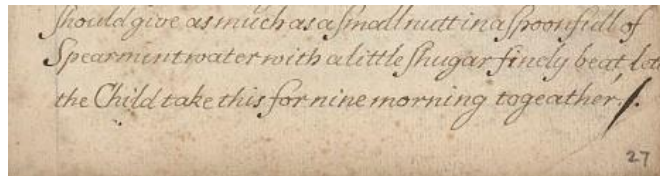 should give as much as a small nutt in a spoonfull of
Spearmint water with a little shugar finely beat, lett
the Child take this for nine morning togeather.
27